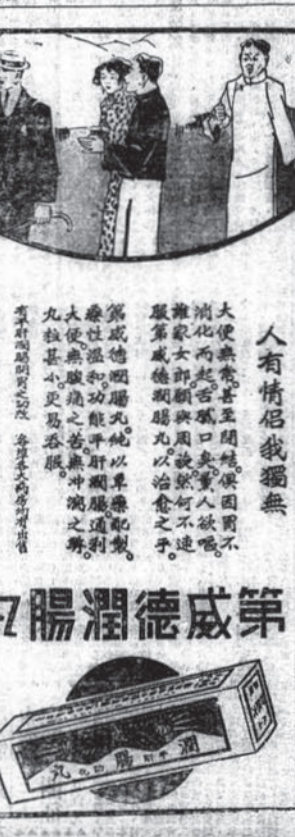 人有情侶我獨無
大便無常。甚至閉結。俱因胃不
消化而起。舌膩口臭。薰人欲嘔。
誰家女郎。願與周旋。然何不速
服第威德潤腸丸。以治愈之乎。
第威德潤腸丸。純以草藥配製。
藥性溫和。功能平肝潤腸。通利
大便。無腹痛之苦。無冲瀉之弊。
丸粒甚小。更易吞服。
有平肝潤腸開胃之功效 各埠各大藥房均有出售
第威德潤腸丸
潤腸丸